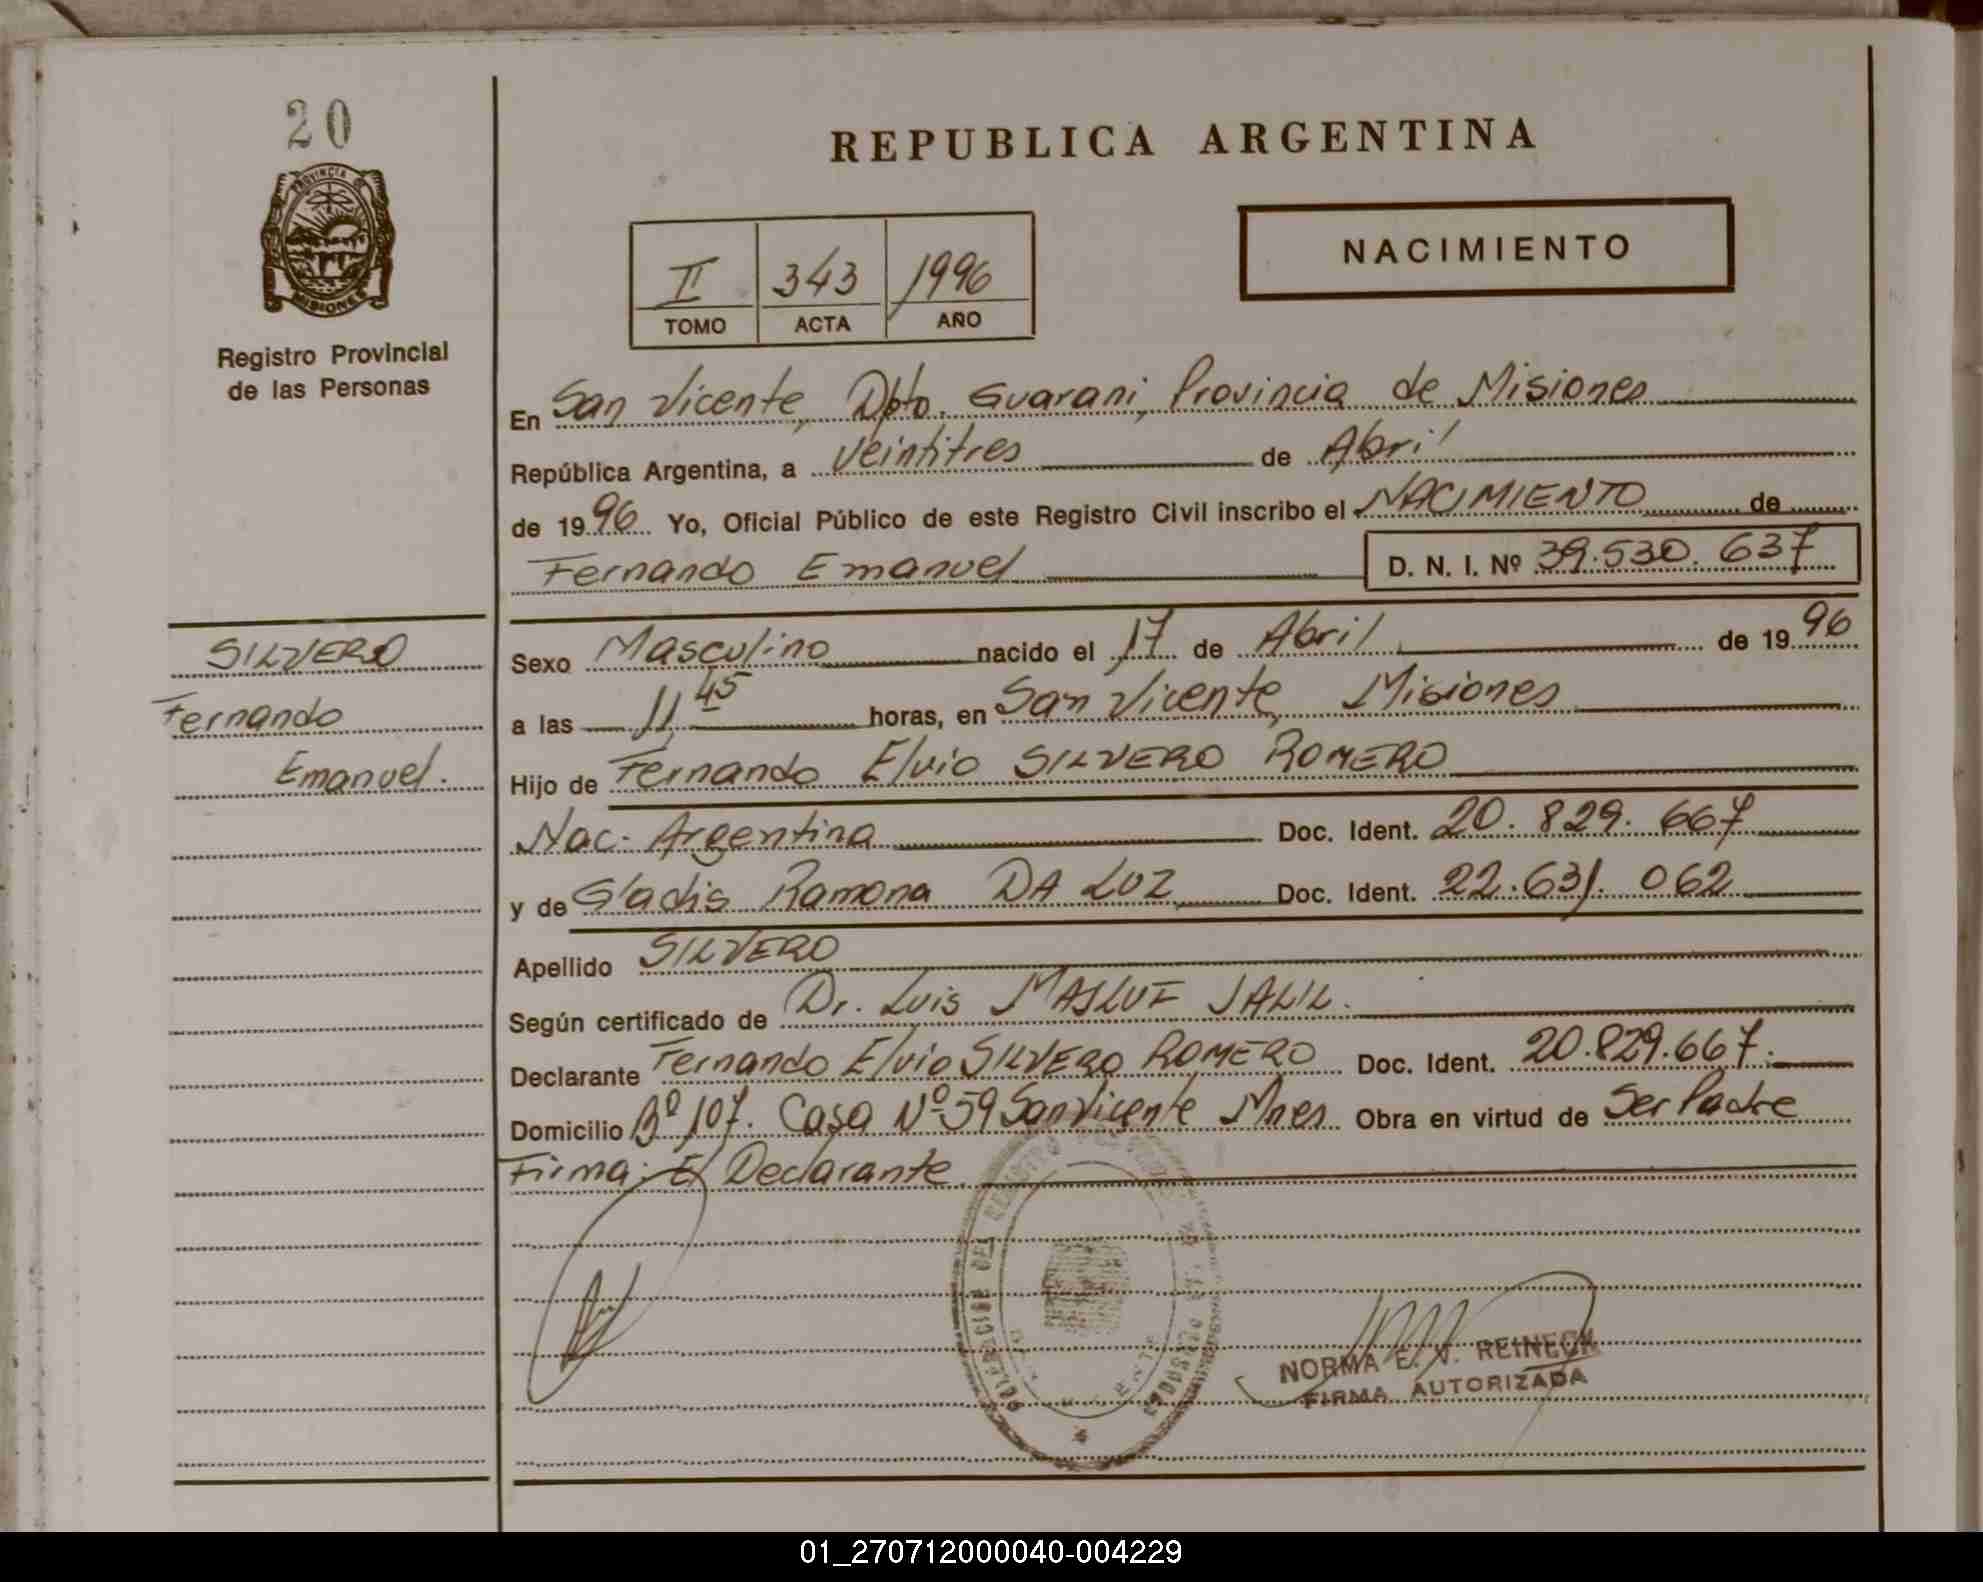 20
PROVINCIA DE
MISIONES
Registro Provincial
de las Personas
SILVERO
Fernando
Emanuel.
REPUBLICA ARGENTINA
NACIMIENTO
II 343 1996
TOMO ACTA AÑO
En San Vicente, Dpto. Guarani, Provincia de Misiones
República Argentina, a veintitres de Abril
de 1996 Yo, Oficial Público de este Registro Civil inscribo el NACIMIENTO de
Fernando Emanuel D. N. I. Nº 39.530.637
Sexo Masculino nacido el 17 de Abril de 1996
a las 11,45 horas, en San Vicente, Misiones
Hijo de Fernando Elvio SILVERO ROMERO
Nac. Argentina Doc. Ident. 20.829.667
y de Gladis Ramona DA LUZ Doc. Ident. 22.631.062
Apellido SILVERO
Según certificado de Dr. Luis JALIL.
Declarante Fernando Elvio SILVERO ROMERO Doc. Ident. 20.829.667.
Domicilio Bº 107. Casa Nº 59 San Vicente Mnes. Obra en virtud de Ser Padre
Firma: El Declarante.
NORMA E. V. REINECK
FIRMA AUTORIZADA
01_270712000040-004229